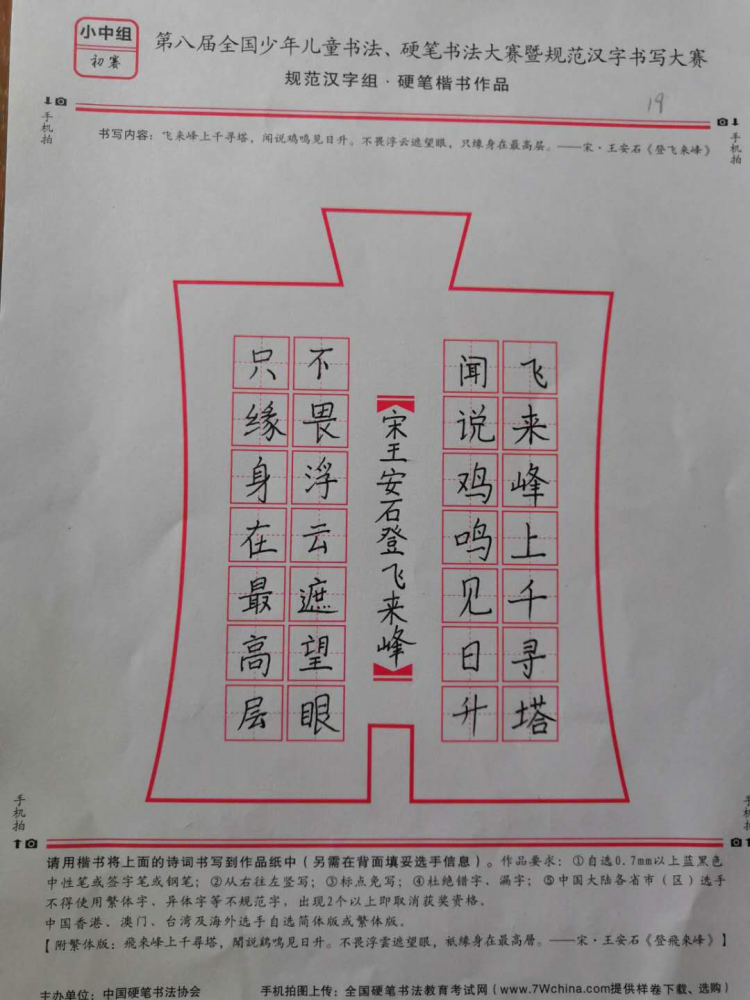 小中组
初赛
第八届全国少年儿童书法、硬笔书法大赛暨规范汉字书写大赛
规范汉字组·硬笔楷书作品
19
手机拍
手机拍
书写内容：飞来峰上千寻塔，闻说鸡鸣见日升。不畏浮云遮望眼，只缘身在最高层。——宋·王安石《登飞来峰》
飞来峰上千寻塔
闻说鸡鸣见日升
宋王安石登飞来峰
不畏浮云遮望眼
只缘身在最高层
手机拍
手机拍
请用楷书将上面的诗词书写到作品纸中（另需在背面填妥选手信息）。作品要求：①自选0.7mm以上蓝黑色
中性笔或签字笔或钢笔；②从右往左竖写；③标点免写；④杜绝错字、漏字；⑤中国大陆各省市（区）选手
不得使用繁体字、异体字等不规范字，出现2个以上即取消获奖资格。
中国香港、澳门、台湾及海外选手自选简体版或繁体版。
【附繁体版：飛來峰上千尋塔，聞説鷄鳴見日升。不畏浮雲遮望眼，祇緣身在最高層。——宋·王安石《登飛來峰》】
主办单位：中国硬笔书法协会
手机拍图上传：全国硬笔书法教育考试网（www.7Wchina.com提供样卷下载、选购）